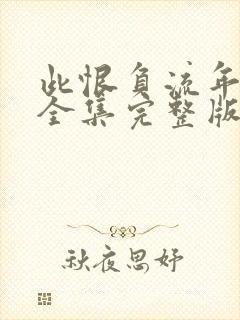 此恨负流年
全集完整版
秋夜思妤